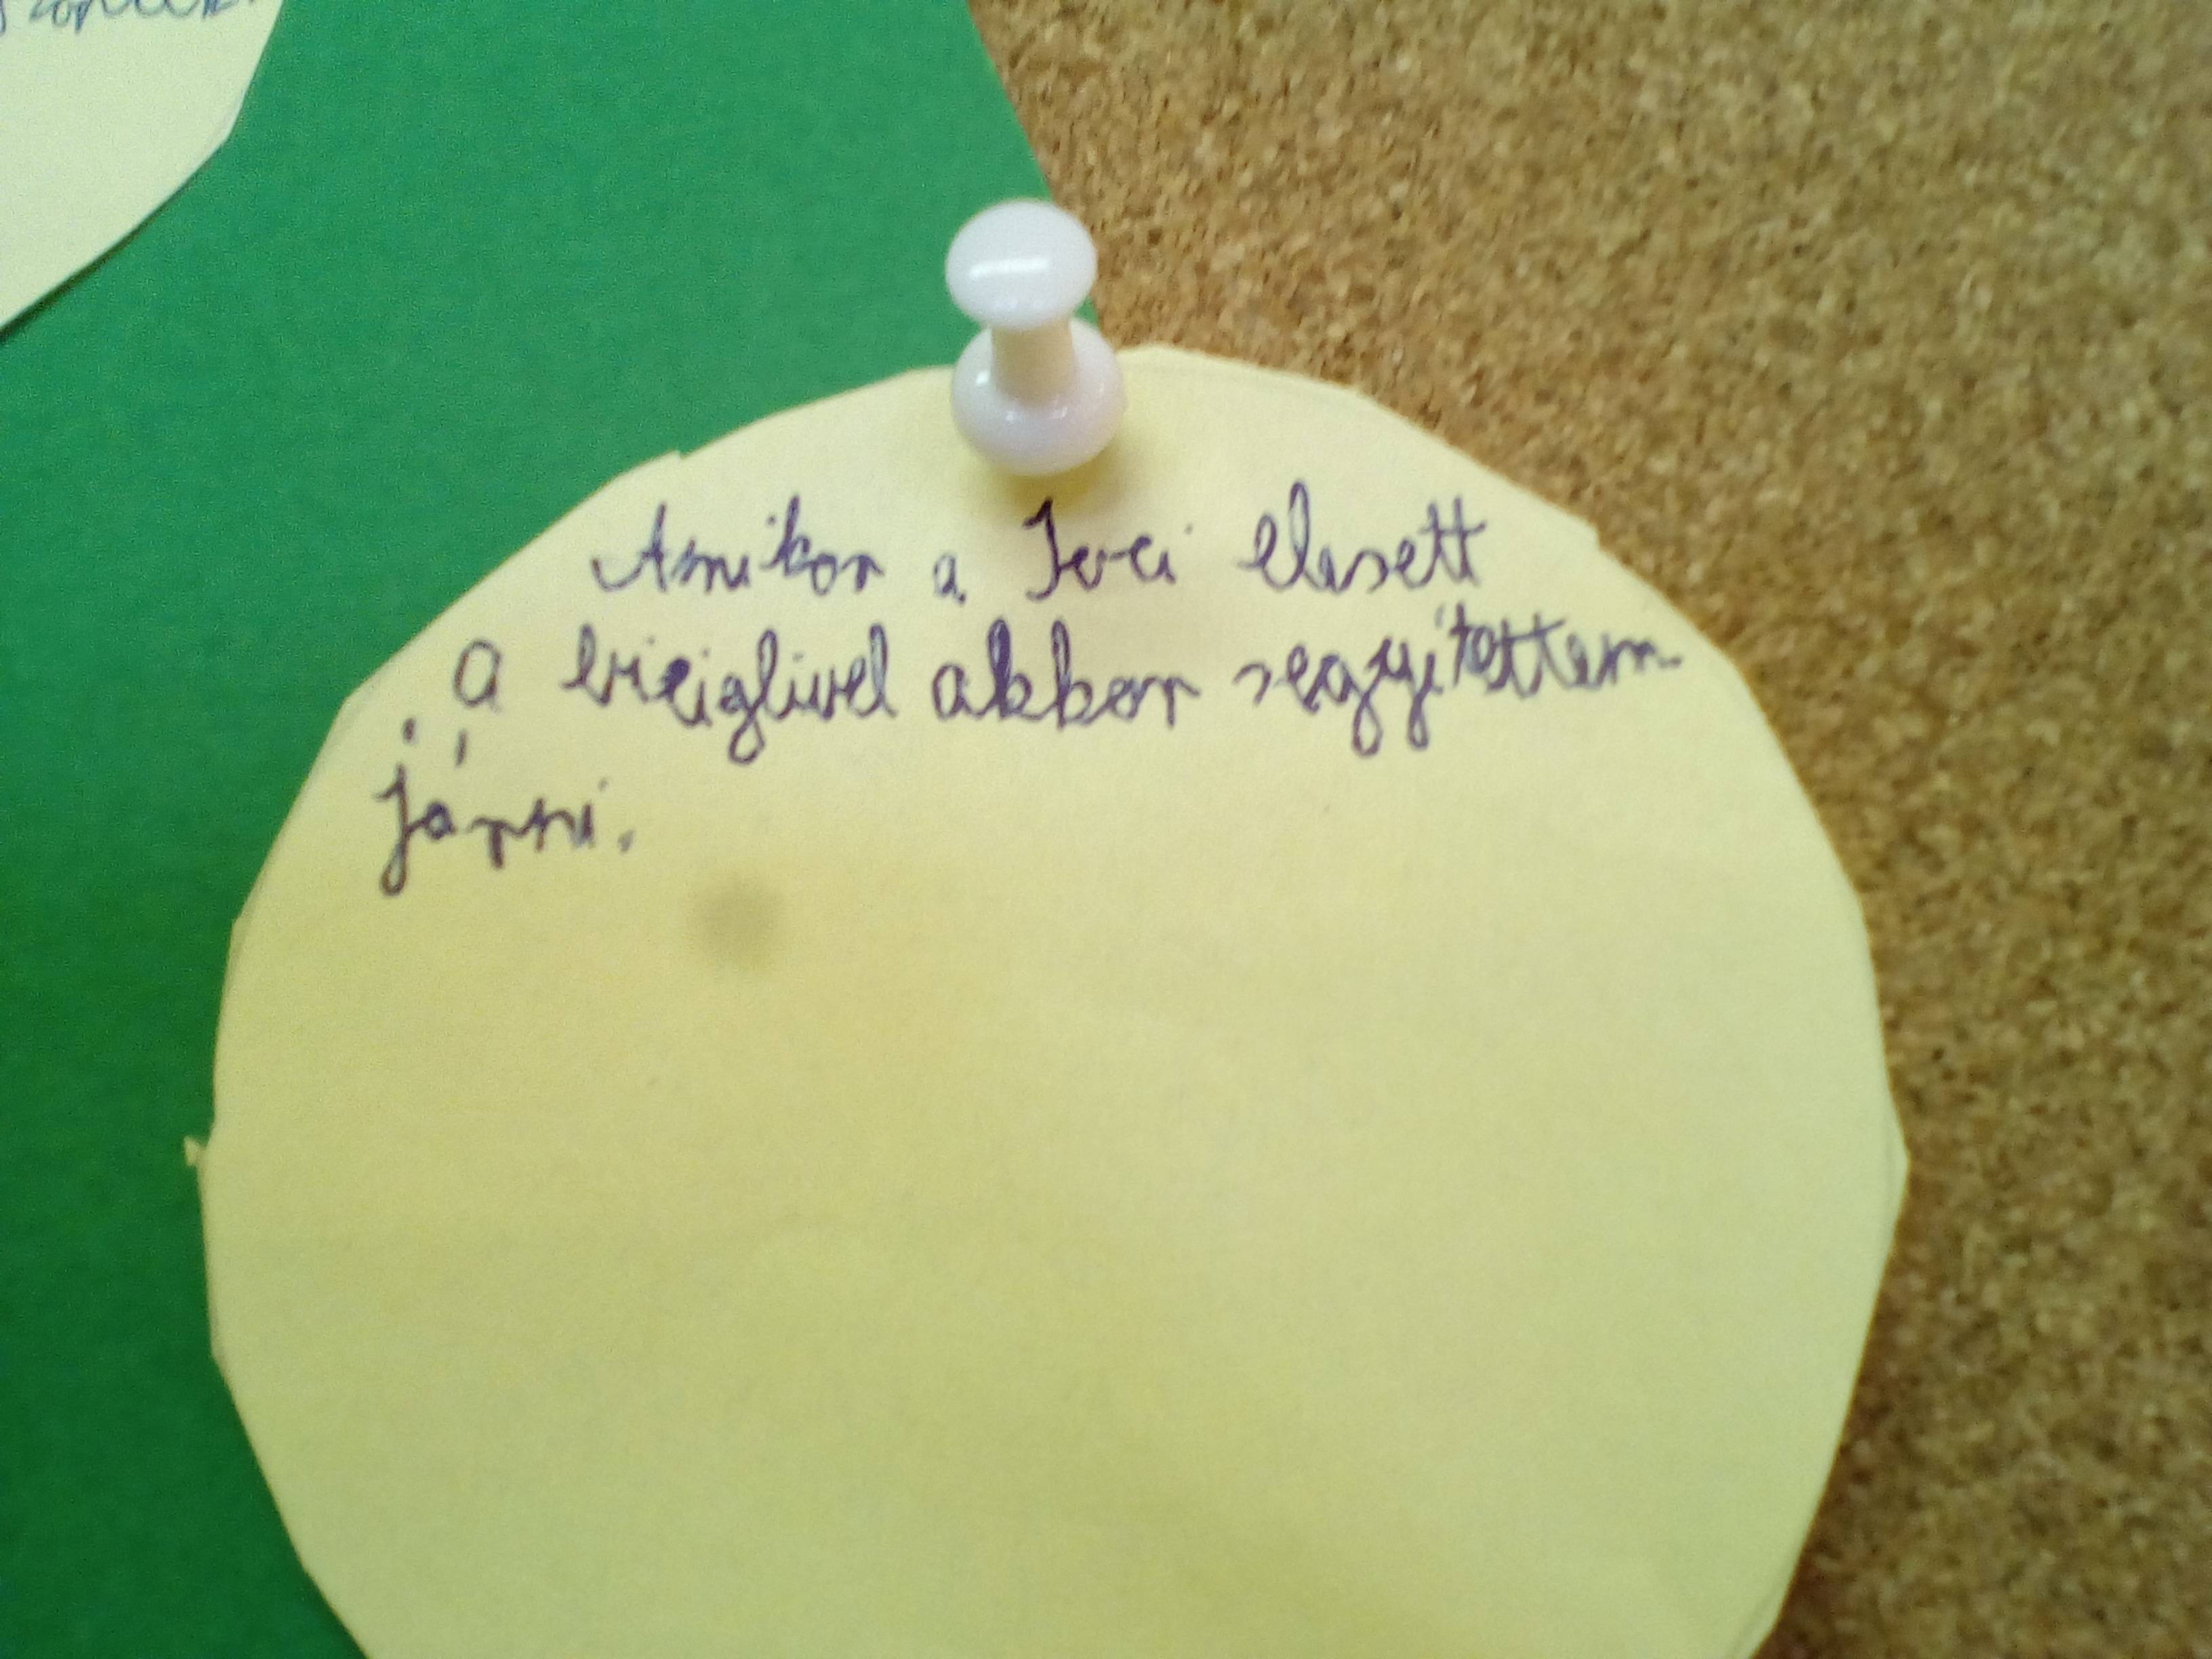 Amikor a Ivci elesett
a biciglivel akkor segyítettem
járni.